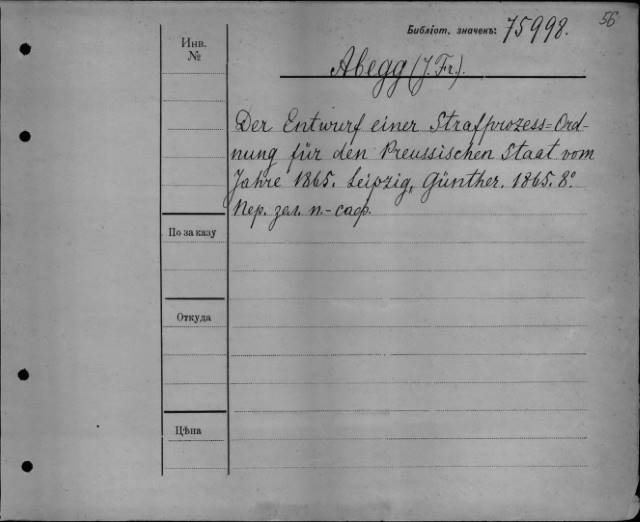 56
Библіот. значекъ: 75998.
Инв.
№
Abegg (J. Fr.).
Der Entwurf einer Strafprozess=Ord-
nung für den Preussischen Staat vom
Jahre 1865. Leipzig, Günther. 1865. 8°
Пер. зел. п.-саф.
По заказу
Откуда
Цѣна